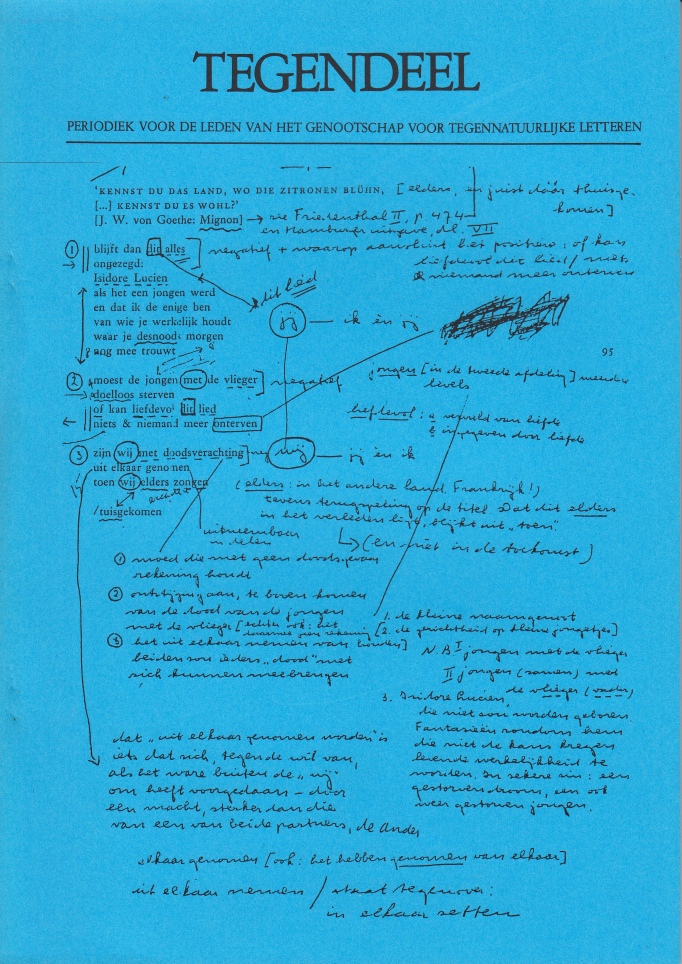 TEGENDEEL
PERIODIEK VOOR DE LEDEN VAN HET GENOOTSCHAP VOOR TEGENNATUURLIJKE LETTEREN
'KENNST DU DAS LAND, WO DIE ZITRONEN BLÜHN, [elders, en juist dáár thuisge-
komen]
[...] KENNST DU ES WOHL?'
[J. W. von Goethe: Mignon] → zie Friedenthal II, p. 474
en Hamburger uitgave, dl. VII
1 blijft dan dit alles
ongezegd:
Isidore Lucien
negatief + waarop aansluit het positieve: of kan
liefdevol dit lied / niets
& niemand meer onterven
dit lied
als het een jongen werd
en dat ik de enige ben
van wie je werkelijk houdt
waar je desnoods morgen
nog mee trouwt
jij — ik èn jij
95
2 moest de jongen met de vlieger
doelloos sterven
of kan liefdevol dit lied
niets & niemand meer onterven
negatief
jongen [in de tweede afdeling] meerdere
levels
liefdevol: a vervuld van liefde
b ingegeven door liefde
3 zijn wij met doodsverachting
uit elkaar genomen
toen wij elders zongen
/tuisgekomen
wij — jij en ik
(elders: in het andere land, Frankrijk!)
tevens terugspeling op de titel. Dat dit elders
in het verleden ligt, blijkt uit "toen".
(en niet in de toekomst)
uitneembaar
in delen
1 moed die met geen doodsgevaar
rekening houdt
2 ontstijging aan, te boven komen
van de dood van de jongen
met de vlieger [echter ook: het
daarmee geen rekening
houden]
3 het uit elkaar nemen van
beiden zou ieders "dood" met
zich kunnen meebrengen
1. de kleine naamgenoot
[2. de gerichtheid op kleine jongetjes]
N.B. I jongen met de vlieger
II jongen (samen) met
de vlieger (vader)
3. Isidore Lucien,
die niet zou worden geboren.
Fantasieën rondom hem
die niet de kans kregen
levende werkelijkheid te
worden. In zekere zin: een
gestorven droom, een ook
weer gestorven jongen.
dat "uit elkaar genomen worden" is
iets dat zich, tegen de wil van,
als het ware buiten de "wij"
om heeft voorgedaan – door
een macht, sterker dan die
van een van beide partners, de ander
elkaar genomen [ook: het hebben genomen van elkaar]
uit elkaar nemen / staat tegenover:
in elkaar zetten